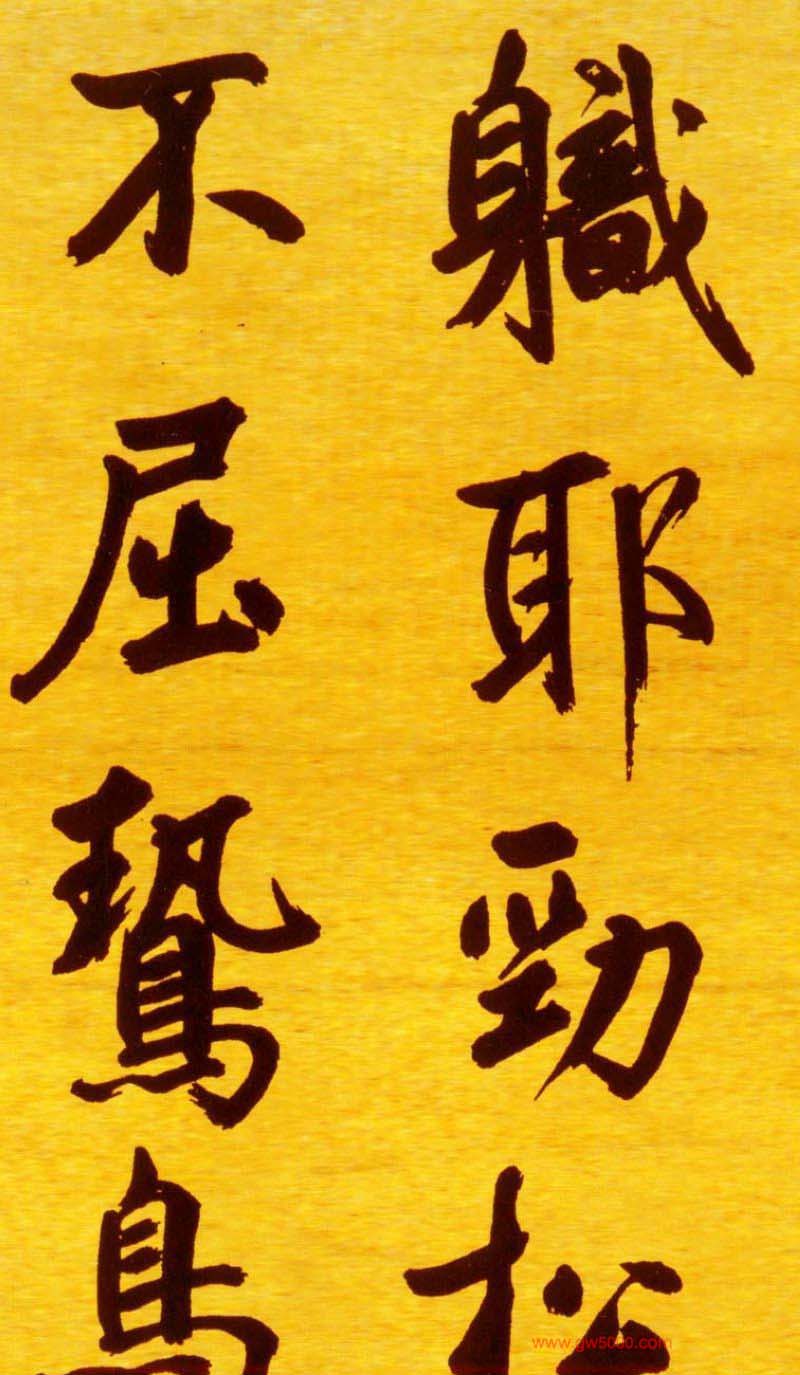 軄耶勁松
不屈鷙鳥
www.gw5000.com